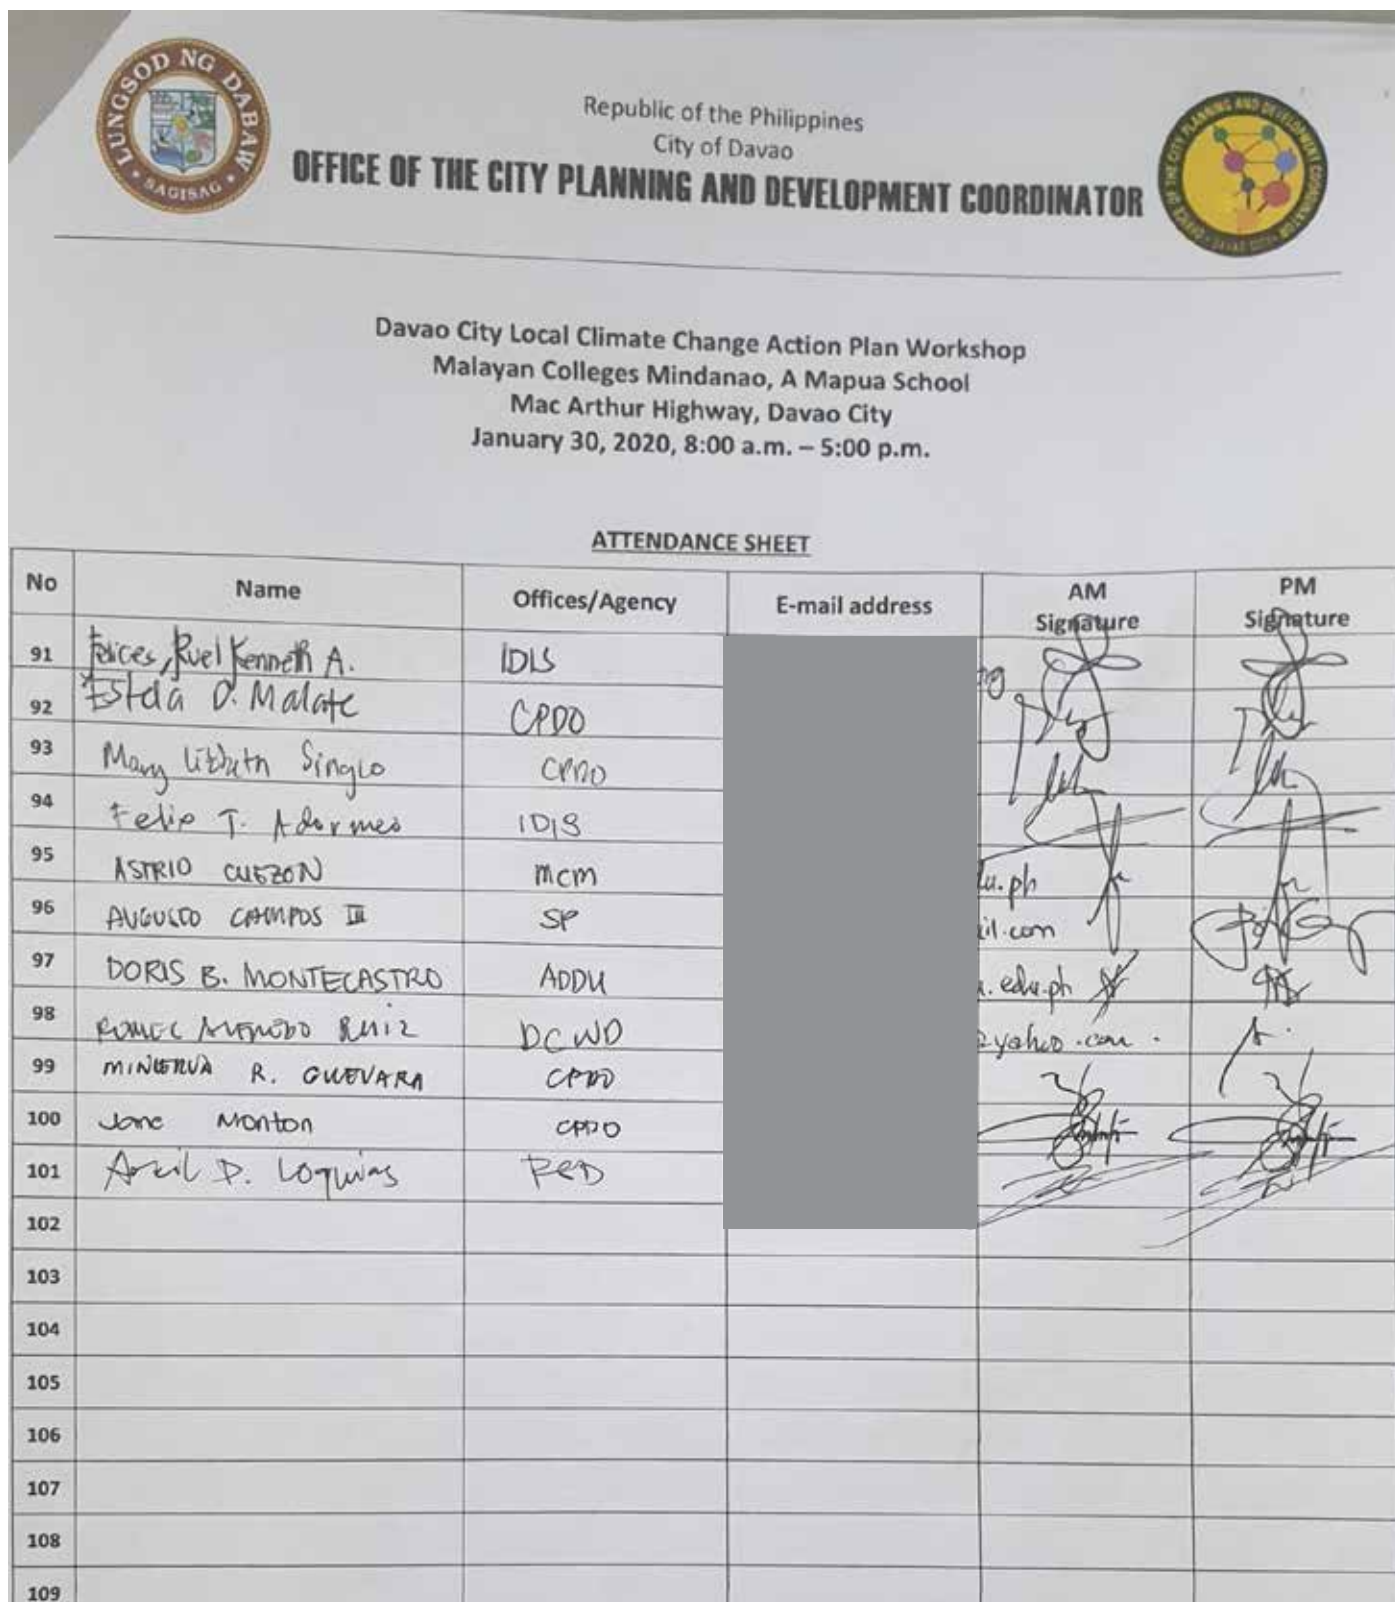 LUNGSOD NG DABAW
SAGISAG
Republic of the Philippines
City of Davao
OFFICE OF THE CITY PLANNING AND DEVELOPMENT COORDINATOR
OFFICE OF THE CITY PLANNING AND DEVELOPMENT COORDINATOR
DAVAO CITY
Davao City Local Climate Change Action Plan Workshop
Malayan Colleges Mindanao, A Mapua School
Mac Arthur Highway, Davao City
January 30, 2020, 8:00 a.m. – 5:00 p.m.
ATTENDANCE SHEET
No Name Offices/Agency E-mail address AM Signature PM Signature
91 Felices, Ruel Kenneth A. IDIS
92 Estela D. Malate CPDO
93 Mary Singlo CPDO
94 Felix T. Adormeo IDIS
95 ASTRID CUEZON MCM du.ph
96 AUGUSTO CAMPOS III SP il.com
97 DORIS B. MONTECASTRO ADDU .edu.ph
98 ROMEL ALFREDO RUIZ DCWD @yahoo.com
99 MINERVA R. GUEVARA CPDO
100 Jane Monton CPDO
101 D. Loquias
102
103
104
105
106
107
108
109